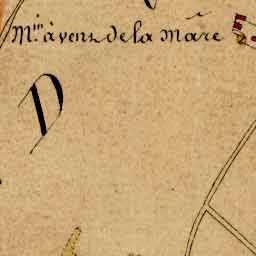 M.in à vent de la Mare
D